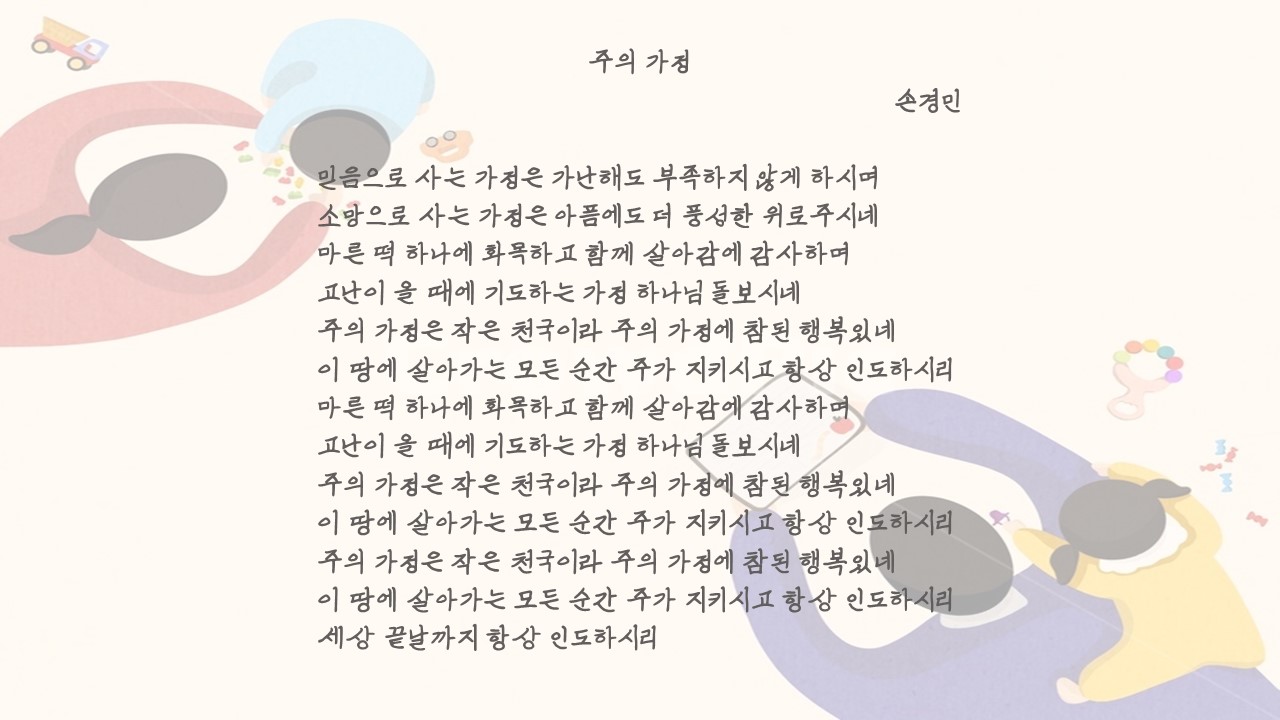 주의 가정
손경민
믿음으로 사는 가정은 가난해도 부족하지 않게 하시며
소망으로 사는 가정은 아픔에도 더 풍성한 위로주시네
마른 떡 하나에 화목하고 함께 살아감에 감사하며
고난이 올 때에 기도하는 가정 하나님 돌보시네
주의 가정은 작은 천국이라 주의 가정에 참된 행복있네
이 땅에 살아가는 모든 순간 주가 지키시고 항상 인도하시리
마른 떡 하나에 화목하고 함께 살아감에 감사하며
고난이 올 때에 기도하는 가정 하나님 돌보시네
주의 가정은 작은 천국이라 주의 가정에 참된 행복있네
이 땅에 살아가는 모든 순간 주가 지키시고 항상 인도하시리
주의 가정은 작은 천국이라 주의 가정에 참된 행복있네
이 땅에 살아가는 모든 순간 주가 지키시고 항상 인도하시리
세상 끝날까지 항상 인도하시리